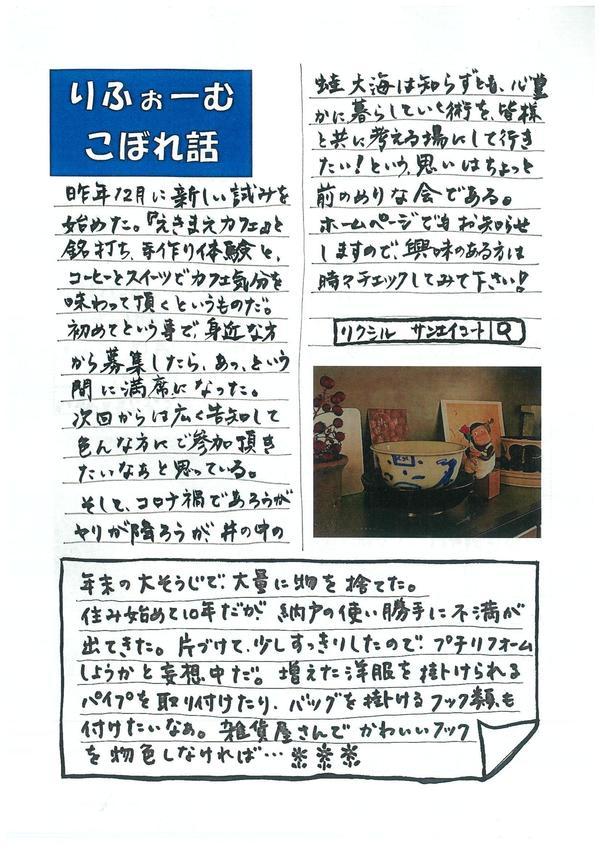 りふぉーむ
こぼれ話
昨年12月に新しい試みを
始めた。『えきまえカフェ』と
銘打ち、手作り体験と、
コーヒーとスイーツでカフェ気分を
味わって頂くというものだ。
初めてという事で、身近な方
から募集したら、あっ、という
間に満席になった。
次回からは広く告知して
色んな方にご参加頂き
たいなぁと思っている。
そして、コロナ禍であろうが
ヤリが降ろうが、井の中の
蛙 大海は知らずとも、心豊
かに暮らしていく術を、皆様
と共に考える場にして行き
たい!という、思いはちょっと
前のめりな会である。
ホームページでもお知らせ
しますので、興味のある方は
時々チェックしてみて下さい!
リクシル サンエイコート
年末の大そうじで、大量に物を捨てた。
住み始めて10年だが、納戸の使い勝手に不満が
出てきた。片づけて、少しすっきりしたので、プチリフォーム
しようかと妄想中だ。増えた洋服を掛けられる
パイプを取り付けたり、バッグを掛けるフック類も
付けたいなぁ。雑貨屋さんでかわいいフック
を物色しなければ…※※※